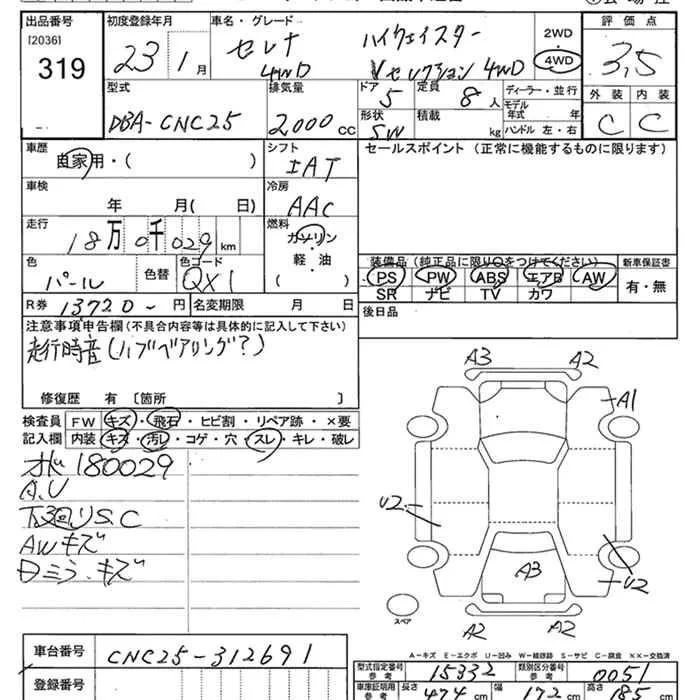 出品番号 初度登録年月 車名・グレード 評価点
[2036]
319
23 1月
セレナ 4WD ハイウェイスター Vセレクション 4WD
2WD 4WD
3,5
型式 排気量 ドア 定員 ディーラー・並行 外装 内装
DBA-CNC25 2000cc 5 8人 モデル年式 年 C C
形状 積載 kg ハンドル 左・右
SW
車歴 シフト セールスポイント (正常に機能するものに限ります)
自家用・( ) IAT
車検 冷房
年 月( 日) AAC
走行 燃料
18万0千029km ガソリン・軽・油( )
色 色替 色コード 装備品(純正品に限り○をつけてください) 新車保証書
パール QX1 PS PW ABS エアB AW 有・無
SR ナビ TV カワ
R券 13720-円 名変期限 月 日 後日品
注意事項申告欄(不具合内容等は具体的に記入して下さい)
走行時音(ハブベアリング?)
修復歴 有 〔箇所 〕
検査員 FW キズ・飛石・ヒビ割・リペア跡・×要
記入欄 内装 キズ・汚レ・コゲ・穴・スレ・キレ・破レ
180029
A.U
下回りS.C
AWキズ
Dミラーキズ
A3 A2
A1
U2
A3
U2
A2 A2
スペア
A-キズ E-エクボ U-凹み W-補修跡 S-サビ C-腐食 XX-交換済
車台番号 CNC25-312691
登録番号
型式指定番号 参考 15332 類別区分番号 参考 0051
車庫証明用 参考 長さ 474cm 幅 172cm 高さ 185cm